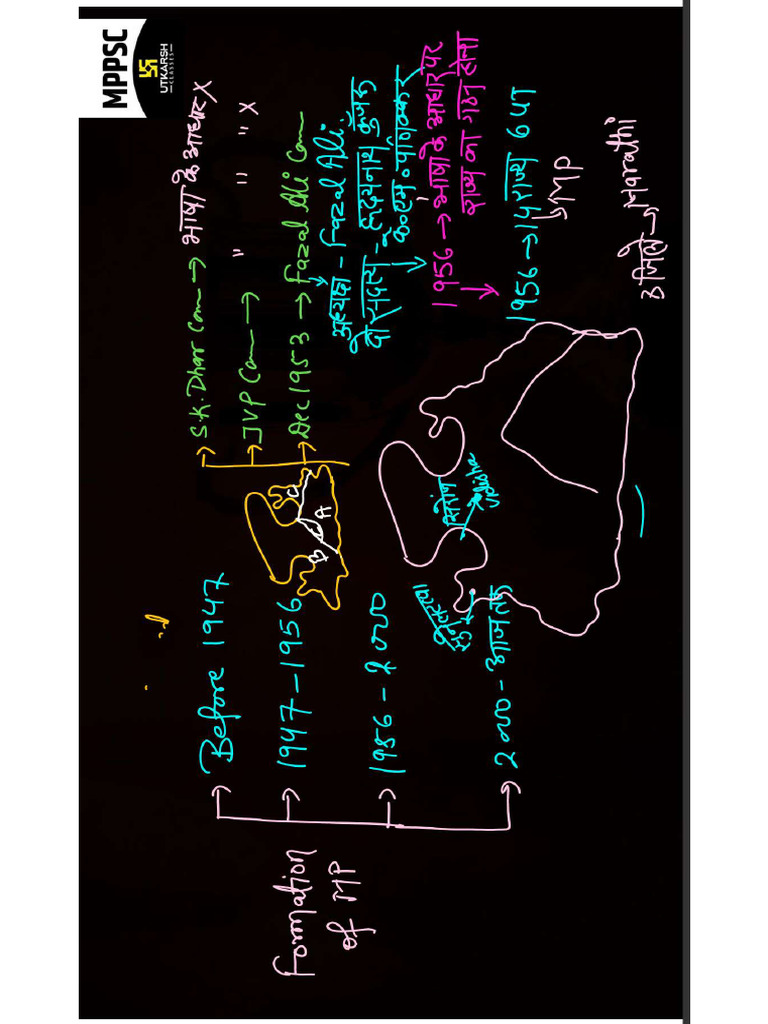 MPPSC
UTKARSH
CLASSES
Formation
of MP
Before 1947
1947-1956
1956-2000
2000-आजतक
S.K. Dhar Com → भाषा के आधार X
JVP Com → " " " X
Dec 1953 → Fazal Ali Com
अध्यक्ष - Fazal Ali.
दो सदस्य - हृदयनाथ कुंजरू
के०एम० पणिक्कर
1956 → भाषा के आधार पर
राज्य का गठन होना
1956 → 14 राज्य 6 UT
MP
8 जिले → Marathi
A
B
C
सिरोंज
Vidisha